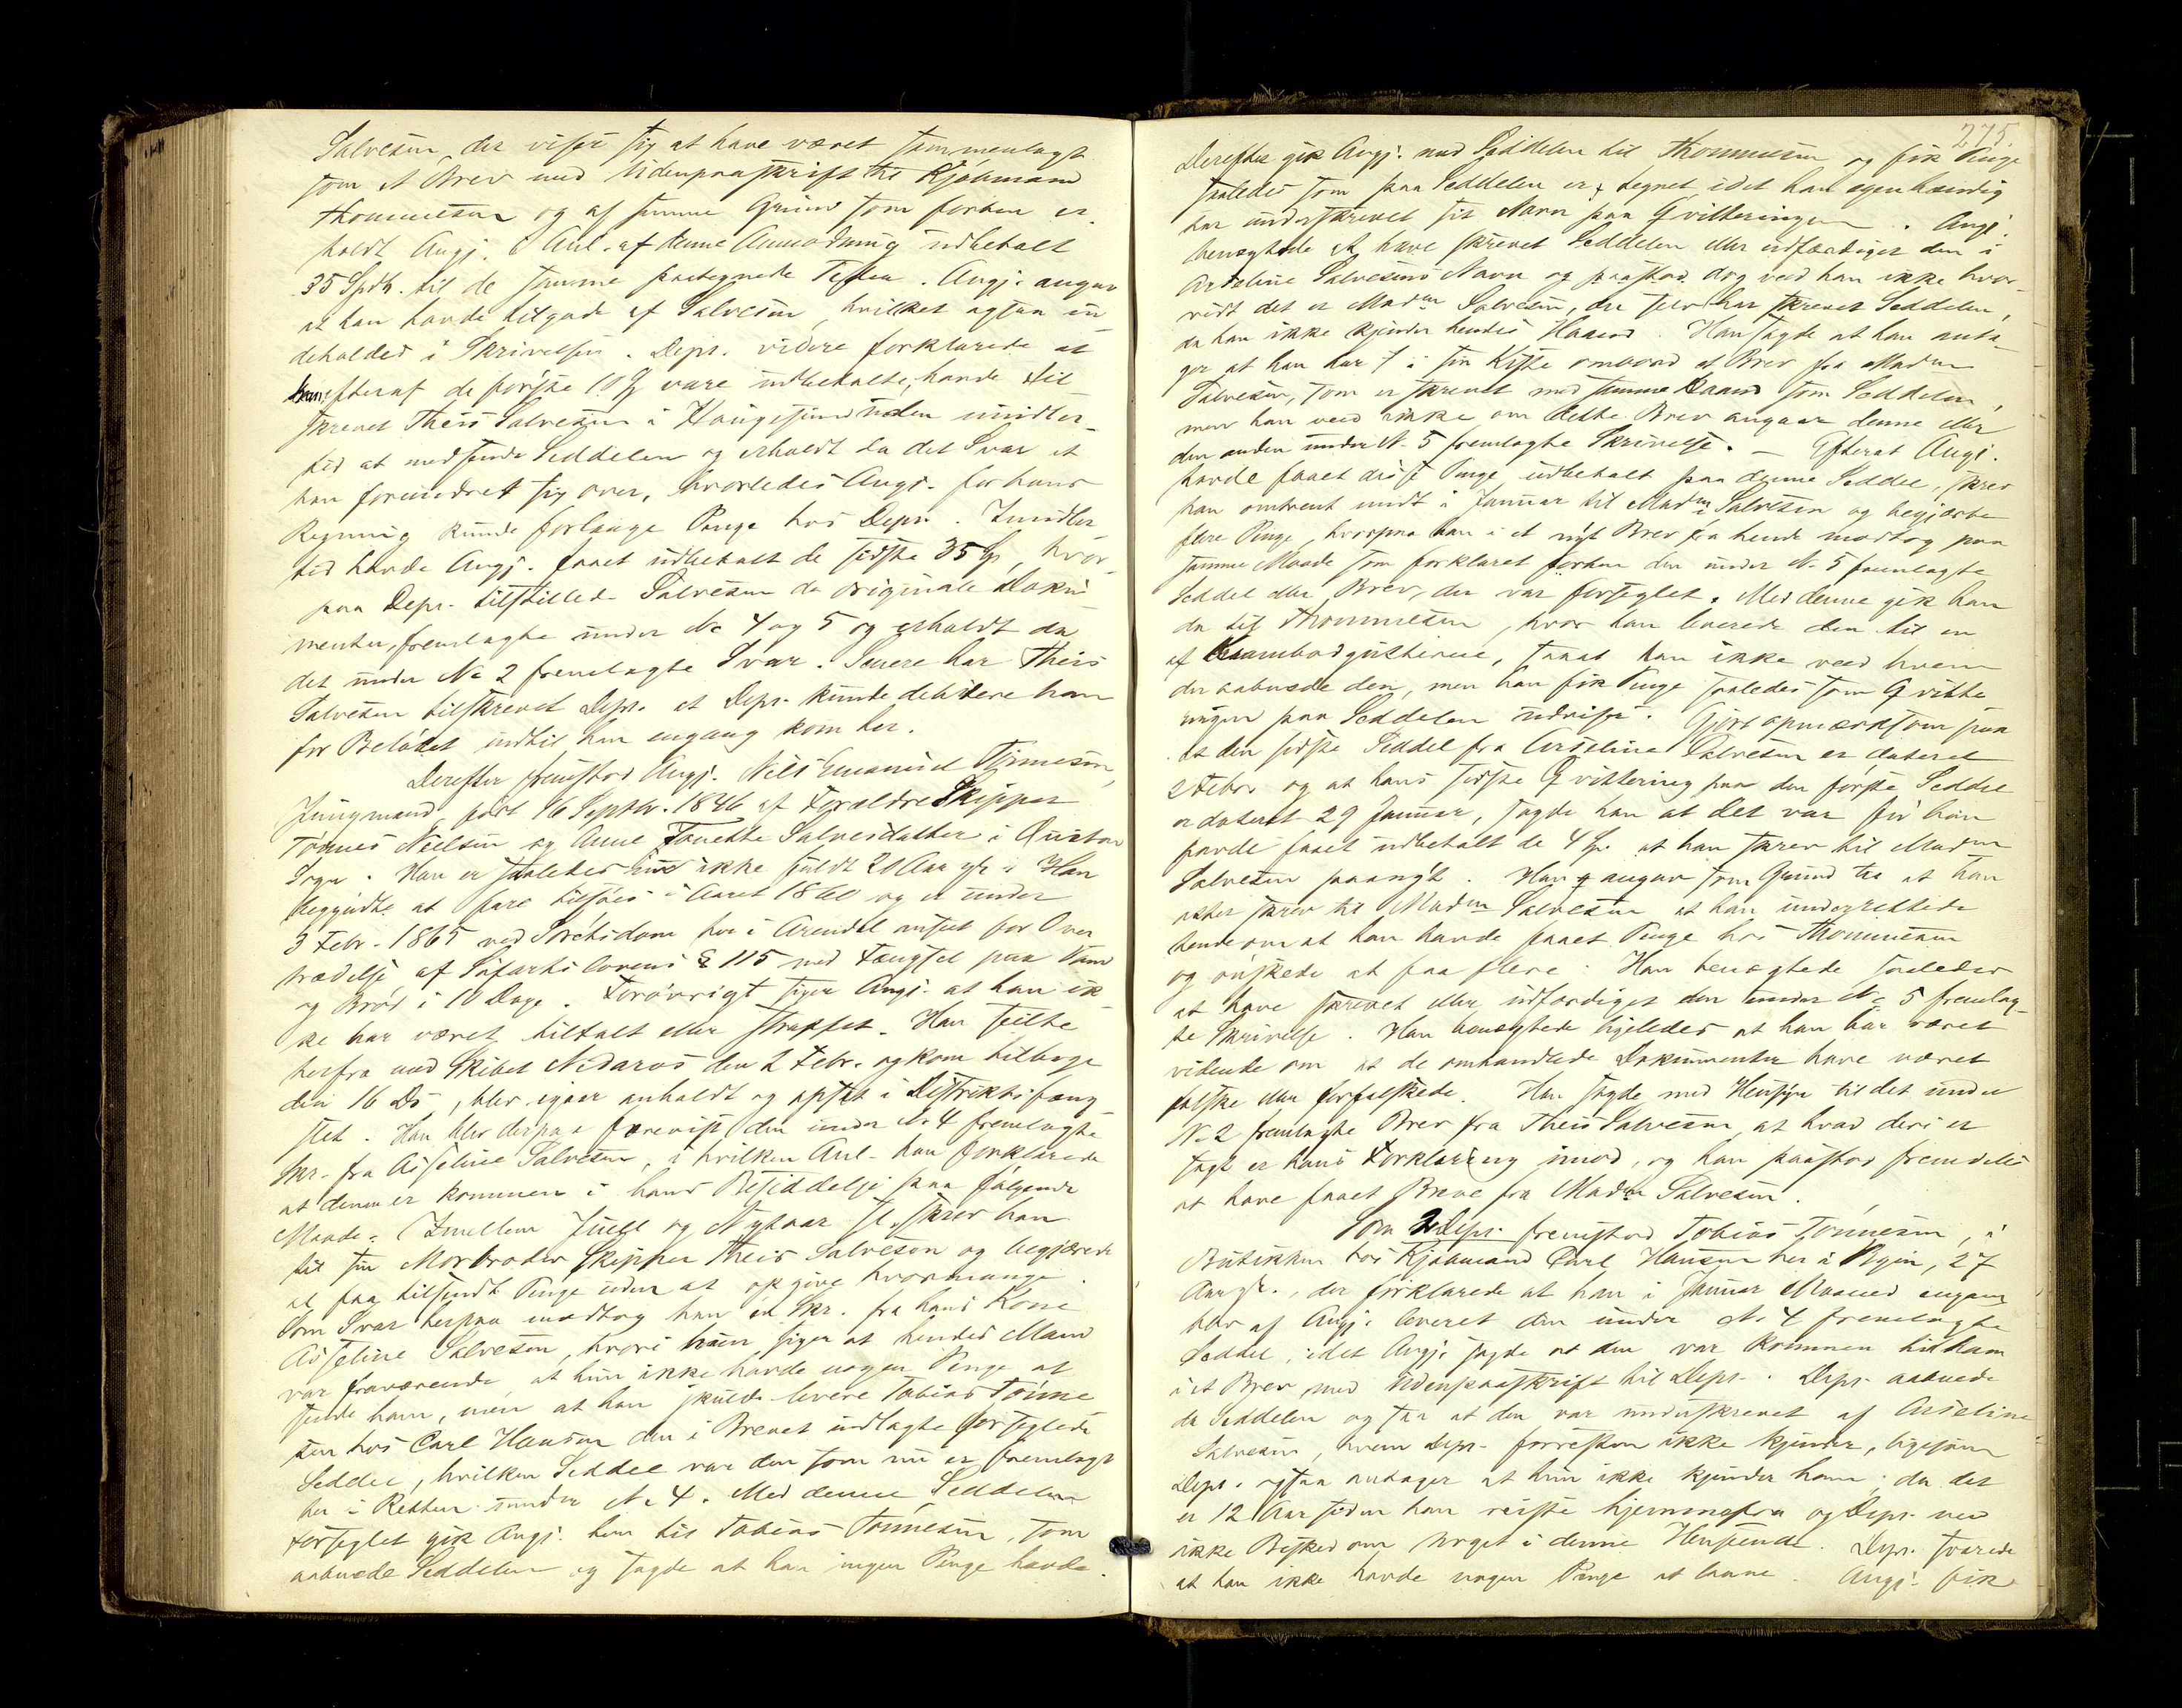 Salvesen, der viser sig at have været sammenlagt
som et Brev med Udenpaaskrift til Kjøbmand
Thommesen og af samme Grund som forhen er
holdt Angj. I Anl. af denne Anmodning udbetalt
35 Spd. til de samme paategnede Tider. Angj. angav
at han havde tilgode af Salvesen, hvilket ogsaa in-
deholdes i Skrivelsen. Deps. videre forklarede at
efterat de første 10 Spd vare udbetalte, havde til-
skrevet Theis Salvesen i Haugesund uden imidler-
tid at medsende Seddelen og erholdt da det Svar at
han forundret sig over, hvorledes Angj. for hans
Regning kunde forlange Penge hos Deps. Imidler-
tid havde Angj. faaet udbetalt de sidste 35 Spd, hvor-
paa Deps. tilstillede Salvesen de originale Doku-
menter, fremlagte under No 4 og 5 og erholdt da
det under No 2 fremlagte Svar. Senere har Theis
Salvesen tilskrevet Deps. at Deps. kunde debitere ham
for Beløbet indtil han engang kom her.
Derefter fremstod Angj. Nils Emanuel Tønnesen,
Jungmand, født 16 Septbr. 1846 af Forældre Skipper
Tønnes Nielsen og Anne Tonette Salvesdatter i
Sogn. Han er saaledes nu ikke fuldt 20 Aar gl. Han
begyndte at fare tilsøes i Aaret 1860 og er under
3 Febr. 1865 ved Søretsdom her i Arendal anseet for Over-
trædelse af Søfartslovens § 115 med Fængsel paa Vand
og Brød i 10 Dage. Forøvrigt siger Angj. at han ik-
ke har været tiltalt eller straffet. Han seilte
herfra med Skibet Nidaros den 2 Febr. og kom tilbage
den 16 Ds, blev igaar anholdt og afsat i Distriktsfæng-
slet. Han blev derpaa forevist den under No 4 fremlagte
Skr. fra Asseline Salvesen, i hvilken Anl. han forklarede
at denne er kommen i hans Besiddelse paa følgende
Maade: Imellem Juul og Nytaar sl. skrev han
til sin Morbroder Skipper Theis Salvesen og begjærede
at faa tilsendt Penge uden at opgive hvormange.
Som Svar herpaa modtog han en Skr. fra hans Kone
Asseline Salvesen, hvori hun siger at hendes Mand
var fraværende, at hun ikke havde nogen Penge at
sende ham, men at han skulde levere Tobias Tønne-
sen hos Carl Hansen den i Brevet indlagte forseglede
Seddel, hvilken Seddel var den som nu er fremlagt
her i Retten under No 4. Med denne Seddelen
forseglet gik Angj. hen til Tobias Tønnesen, som
aabnede Seddelen og sagde at han ingen Penge havde.
275.
Derefter gik Angj. med Seddelen til Thommesen og fik Penge
saaledes som paa Seddelen er tegnet, idet han egenhændig
har underskrevet sit Navn paa Qvitteringen. Angj.
benægtede at have skrevet Seddelen eller udfærdiget den i
Asseline Salvesens Navn og paastod, dog ved han ikke hvor-
vidt det er Madm Salvesen, der selv har skrevet Seddelen,
da han ikke kjender hendes Haand. Han sagde at han anta-
ger at han har i sin Kiste ombord et Brev fra Madm
Salvesen, som er skrevet med samme Haand som Seddelen,
men han veed ikke om dette Brev angaar denne eller
den anden under No 5 fremlagte Skrivelse. — Efterat Angj.
havde faaet disse Penge udbetalt paa denne Seddel, skrev
han omtrent midt i Januar til Madm Salvesen og begjærte
flere Penge, hvorpaa han i et nyt Brev fra hende modtog paa
samme Maade som forklaret forhen den under No 5 fremlagte
Seddel eller Brev, der var forseglet. Med denne gik han
da til Thommesen, hvor han leverede den til en
af Krambodgutterne, saaat han ikke veed hvem
der aabnede den, men han fik Penge saaledes som Qvitte-
ringen paa Seddelen udviser. Gjort opmærksom paa
at den sidste Seddel fra Asseline Salvesen er dateret
2 Febr. og at hans sidste Qvittering paa den første Seddel
er dateret 29 Januar, sagde han at det var før han
havde faaet udbetalt de 4 Spd. at han skrev til Madm
Salvesen paanyt. Han angav som Grund til at han
atter skrev til Madm Salvesen at han underrettede
hende om at han havde faaet Penge hos Thommesen
og ønskede at faa flere. Han benægtede saaledes
at have skrevet eller udfærdiget den under No 5 fremlag-
te Skrivelse. Han benægtede ligeledes at han har været
vidende om at de omhandlede Dokumenter have været
falske eller forfalskede. Han sagde med Hensyn til det under
No 2 fremlagte Brev fra Theis Salvesen, at hvad deri er
sagt er hans Forklaring imod, og han paastod fremdeles
at have faaet Breve fra Madm Salvesen.
Som 2 Deps. fremstod Tobias Tønnesen, i
Butikken hos Kjøbmand Carl Hansen her i Byen, 27
Aar gl., der forklarede at han i Januar Maaned engang
blev af Angj. leveret den under No 4 fremlagte
Seddel, idet Angj. sagde at den var kommen til ham
i et Brev, med Udenpaaskrift til Deps. Deps. aabnede
da Seddelen og saa at den var underskrevet af Asseline
Salvesen, hvem Deps. forresten ikke kjender, ligesom
Deps. ogsaa antager at hun ikke kjender ham, da det
er 12 Aar siden han reiste hjemmefra og Deps. veed
ikke Besked om noget i denne Henseende. Deps. svarede
at han ikke havde nogen Penge at laane. Angj. fik